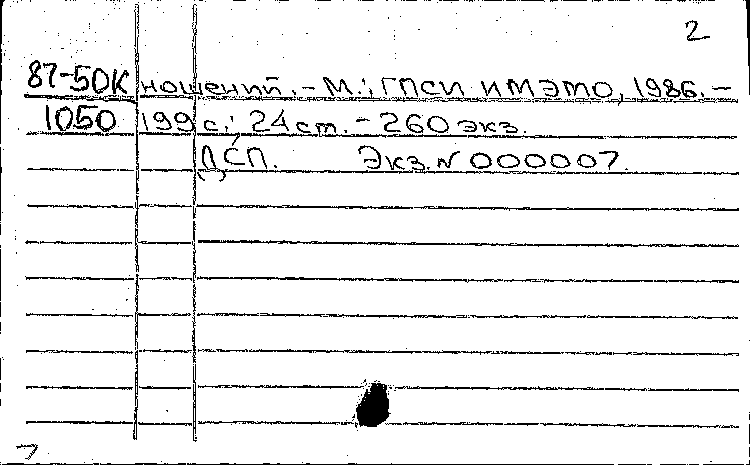 2
87-50К ношений. - М.: ГПСИ ИМЭМО, 1986. -
1050 199 с.; 24 cm. - 260 экз.
ДСП. Экз. N 000007.
7